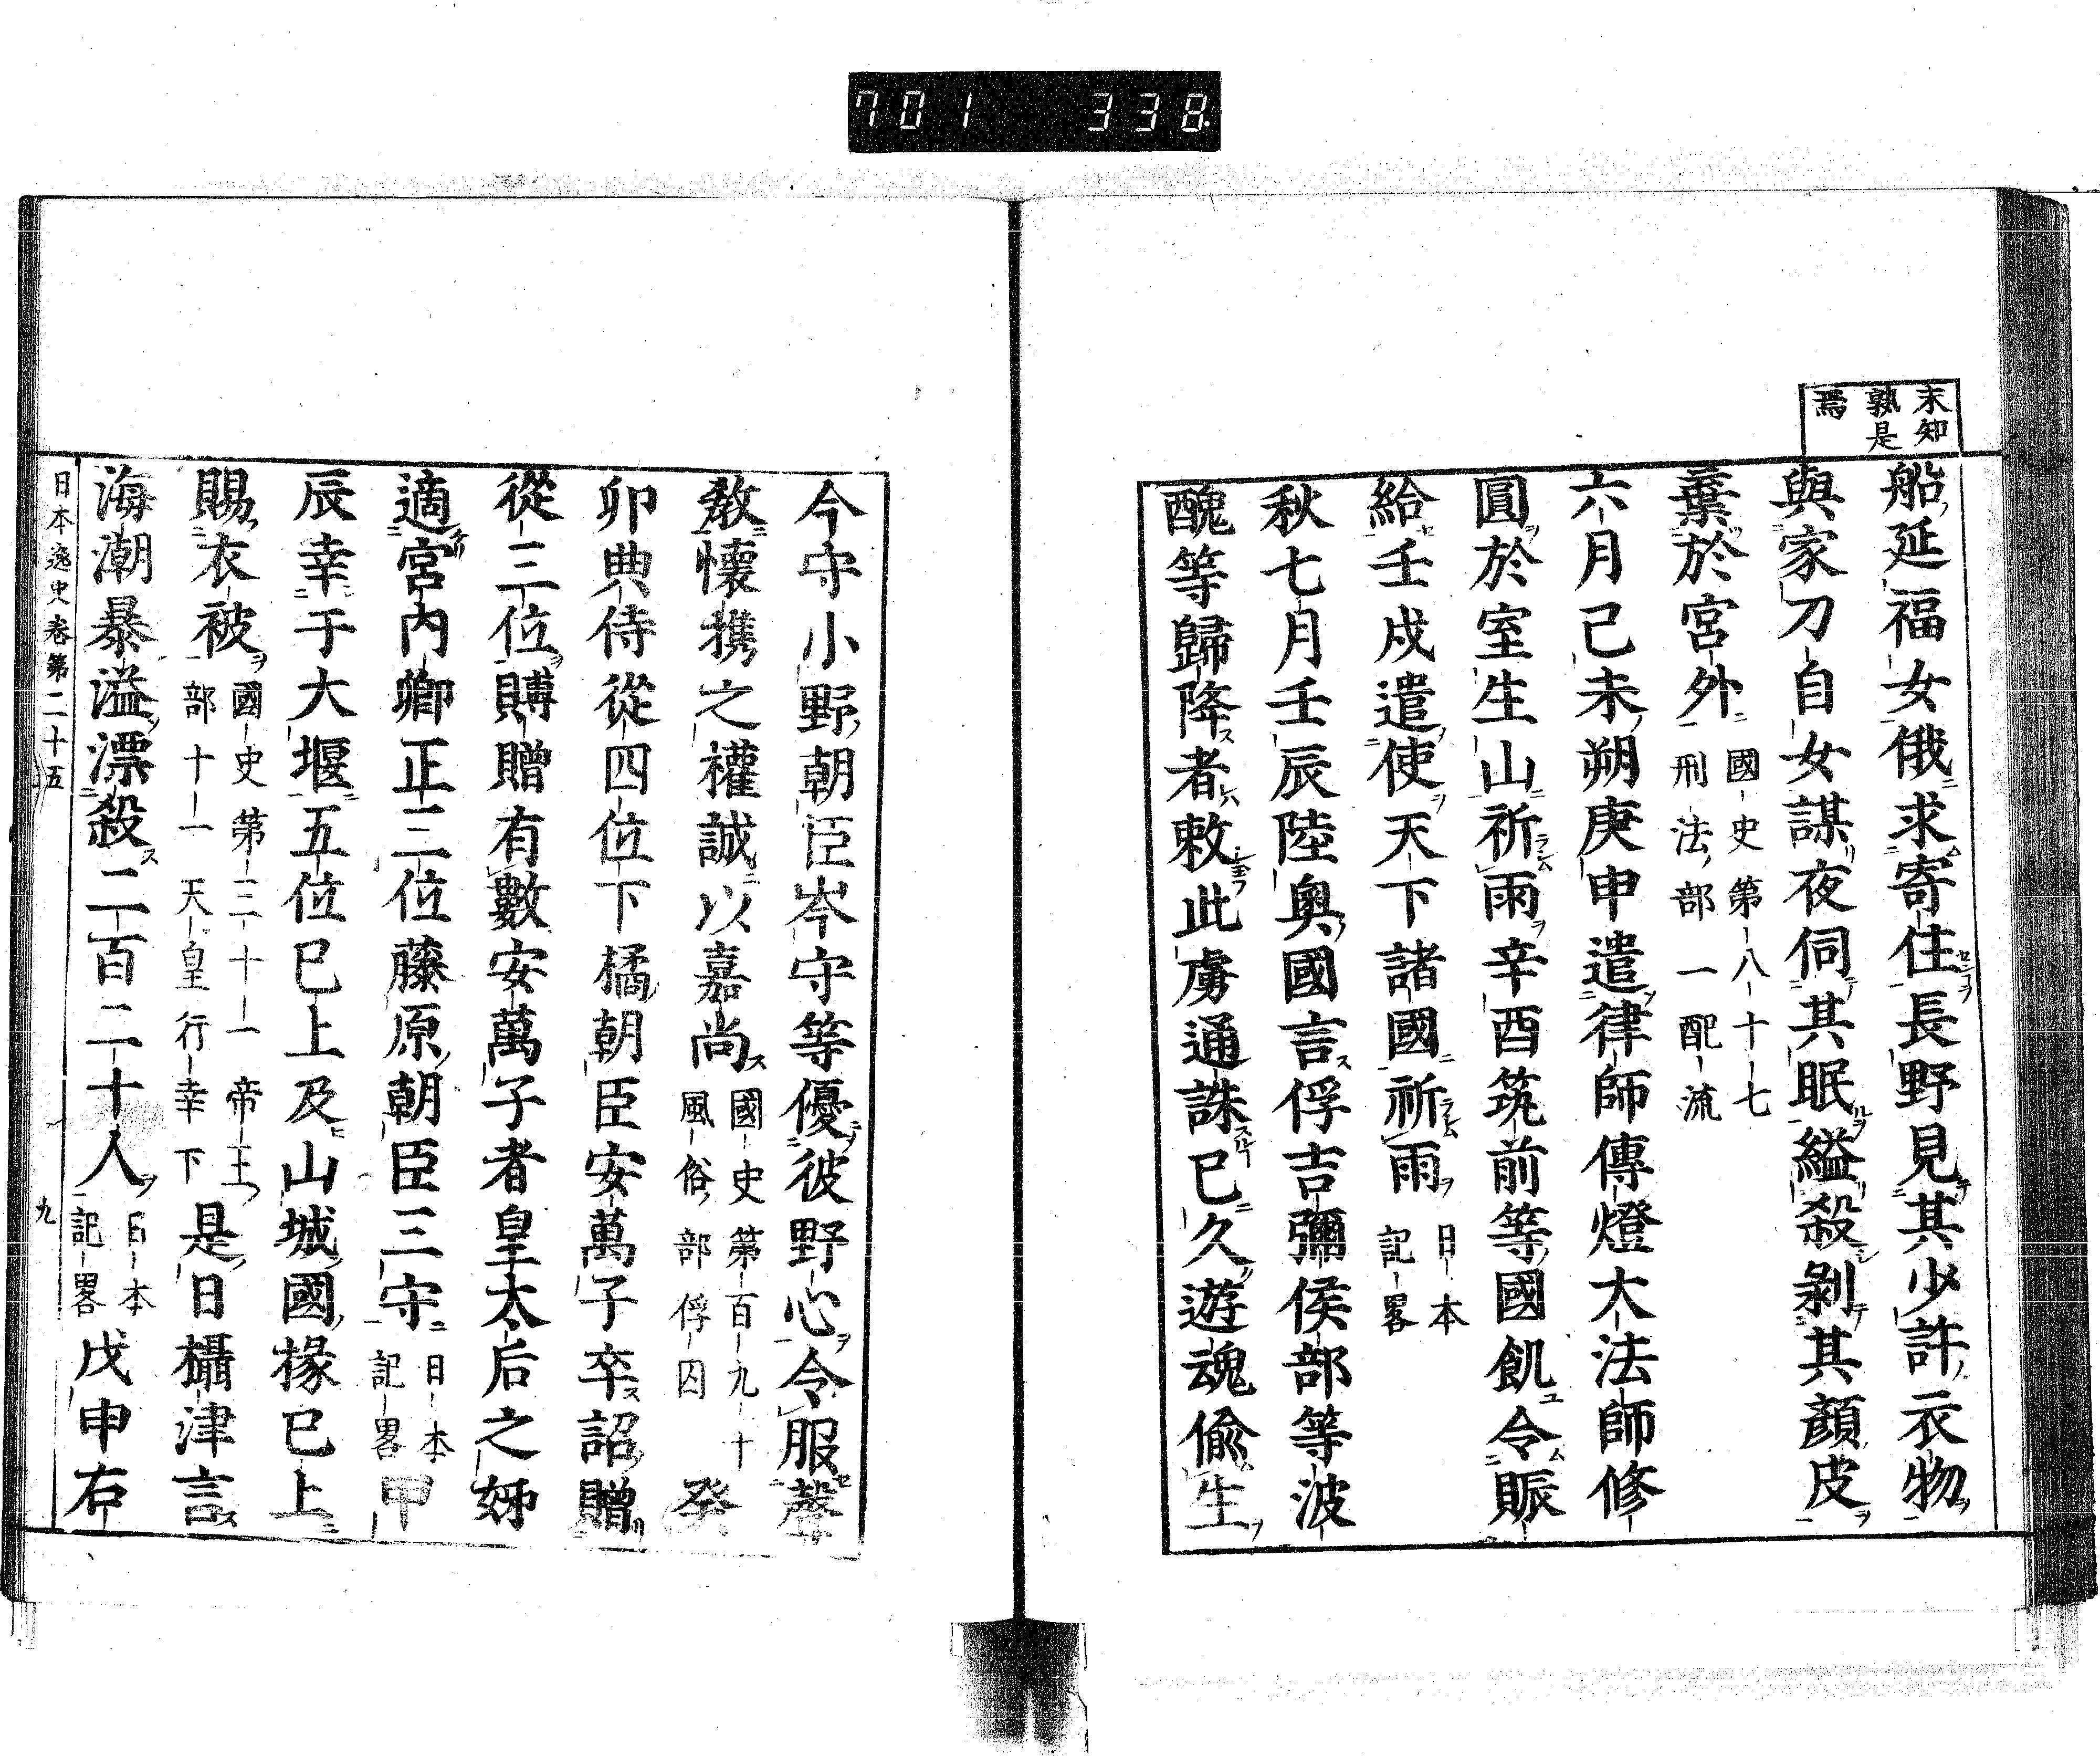 701 338
未知
孰是
焉
船延福女俄求寄住長野見其少許衣物
與家刀自女謀夜伺其眠縊殺剝其顏皮
棄於宮外國史第八十七
刑法部一配流
六月己未朔庚申遣律師傳燈大法師修
圓於室生山祈雨辛酉筑前等國飢令賑
給壬戌遣使天下諸國祈雨日本
記畧
秋七月壬辰陸奧國言俘吉彌侯部等波
醜等歸降者敕此虜通誅已久遊魂偸生
今守小野朝臣岑守等優彼野心令服聲
敎懷携之權誠以嘉尚國史第百九十
風俗部俘囚
癸
卯典侍從四位下橘朝臣安萬子卒詔贈
從三位賻贈有數安萬子者皇太后之姊
適宮內卿正三位藤原朝臣三守日本
記畧
甲
辰幸于大堰五位已上及山城國掾已上
賜衣被國史第三十一帝王
部十一天皇行幸下
是日攝津言
海潮暴溢漂殺二百二十人日本
記畧
戊申右
日本逸史卷第二十五
九